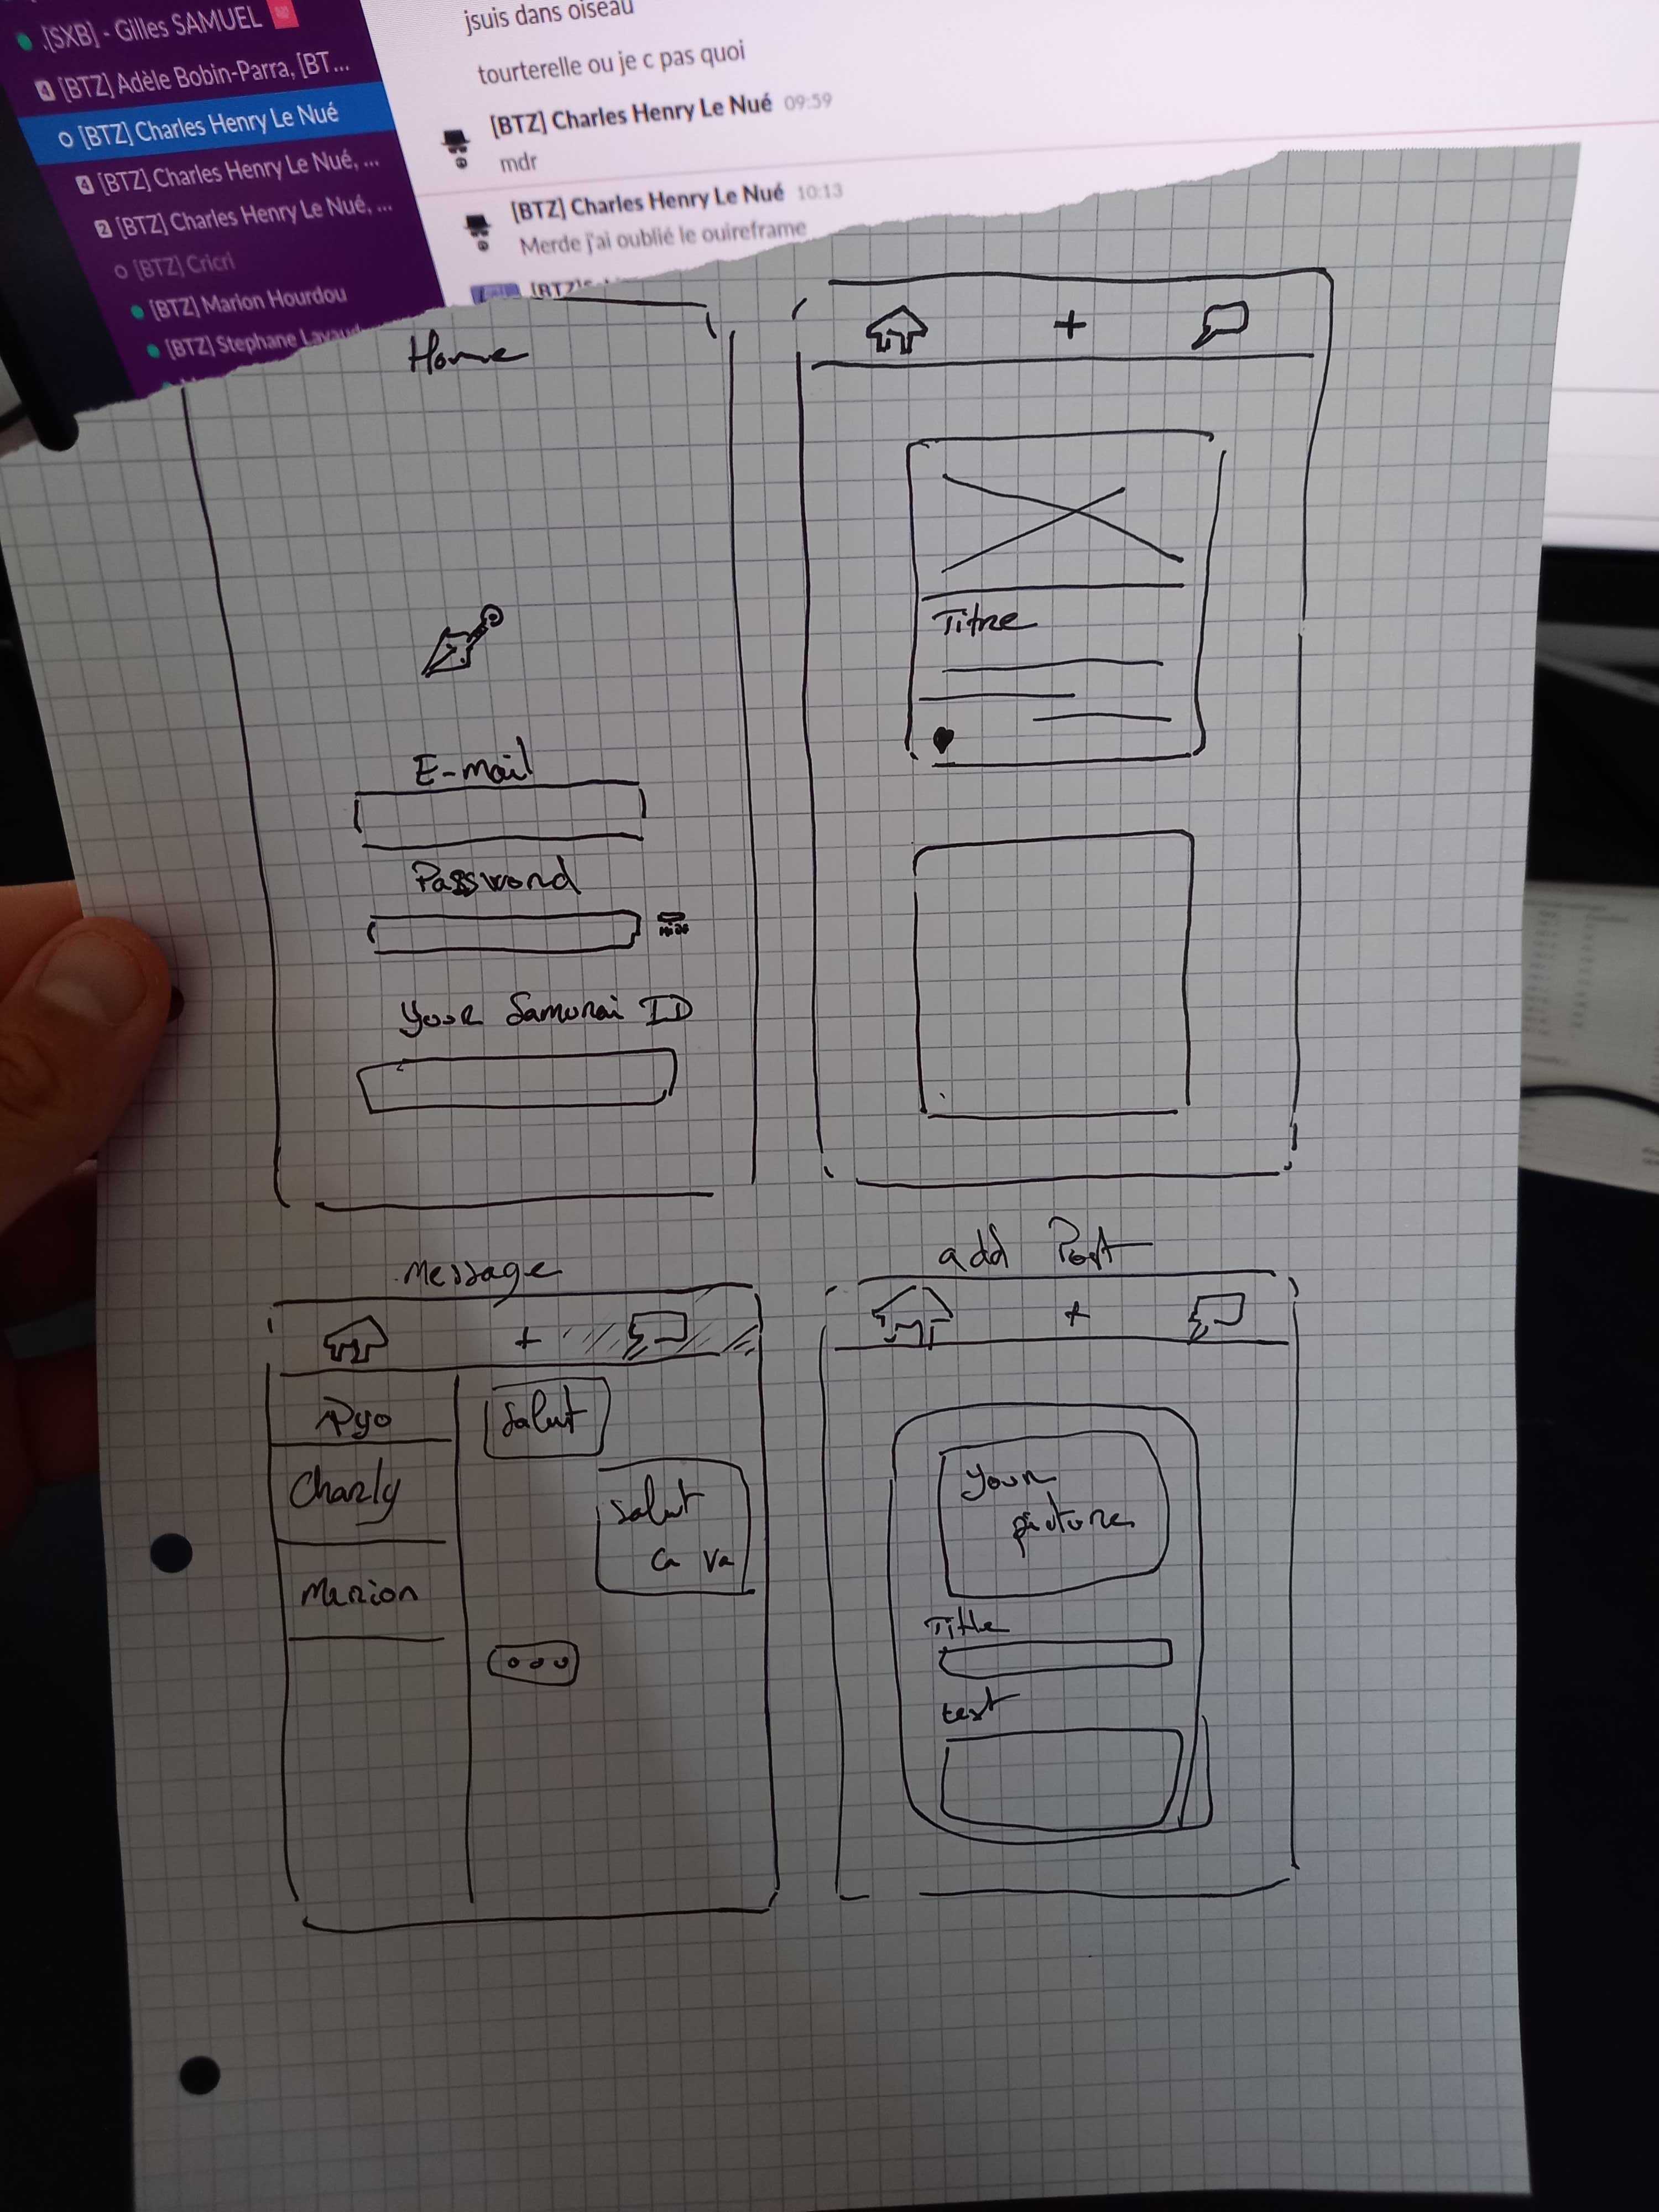 .[SXB] - Gilles SAMUEL
[BTZ] Adèle Bobin-Parra, [BT...
[BTZ] Charles Henry Le Nué
[BTZ] Charles Henry Le Nué, ...
[BTZ] Charles Henry Le Nué, ...
[BTZ] Cricri
[BTZ] Marion Hourdou
[BTZ] Stephane
jsuis dans oiseau
tourterelle ou je c pas quoi
[BTZ] Charles Henry Le Nué 09:59
mdr
[BTZ] Charles Henry Le Nué 10:13
Merde j'ai oublié le ouireframe
Home
E-mail
Password
Your Samurai ID
+
Titre
Message
+
Ayo
Charly
Marion
Salut
Salut
Ca va
add Post
+
Your
picture
Title
text